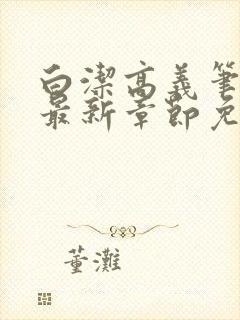 白潔高義筆
最新章節免
董灘